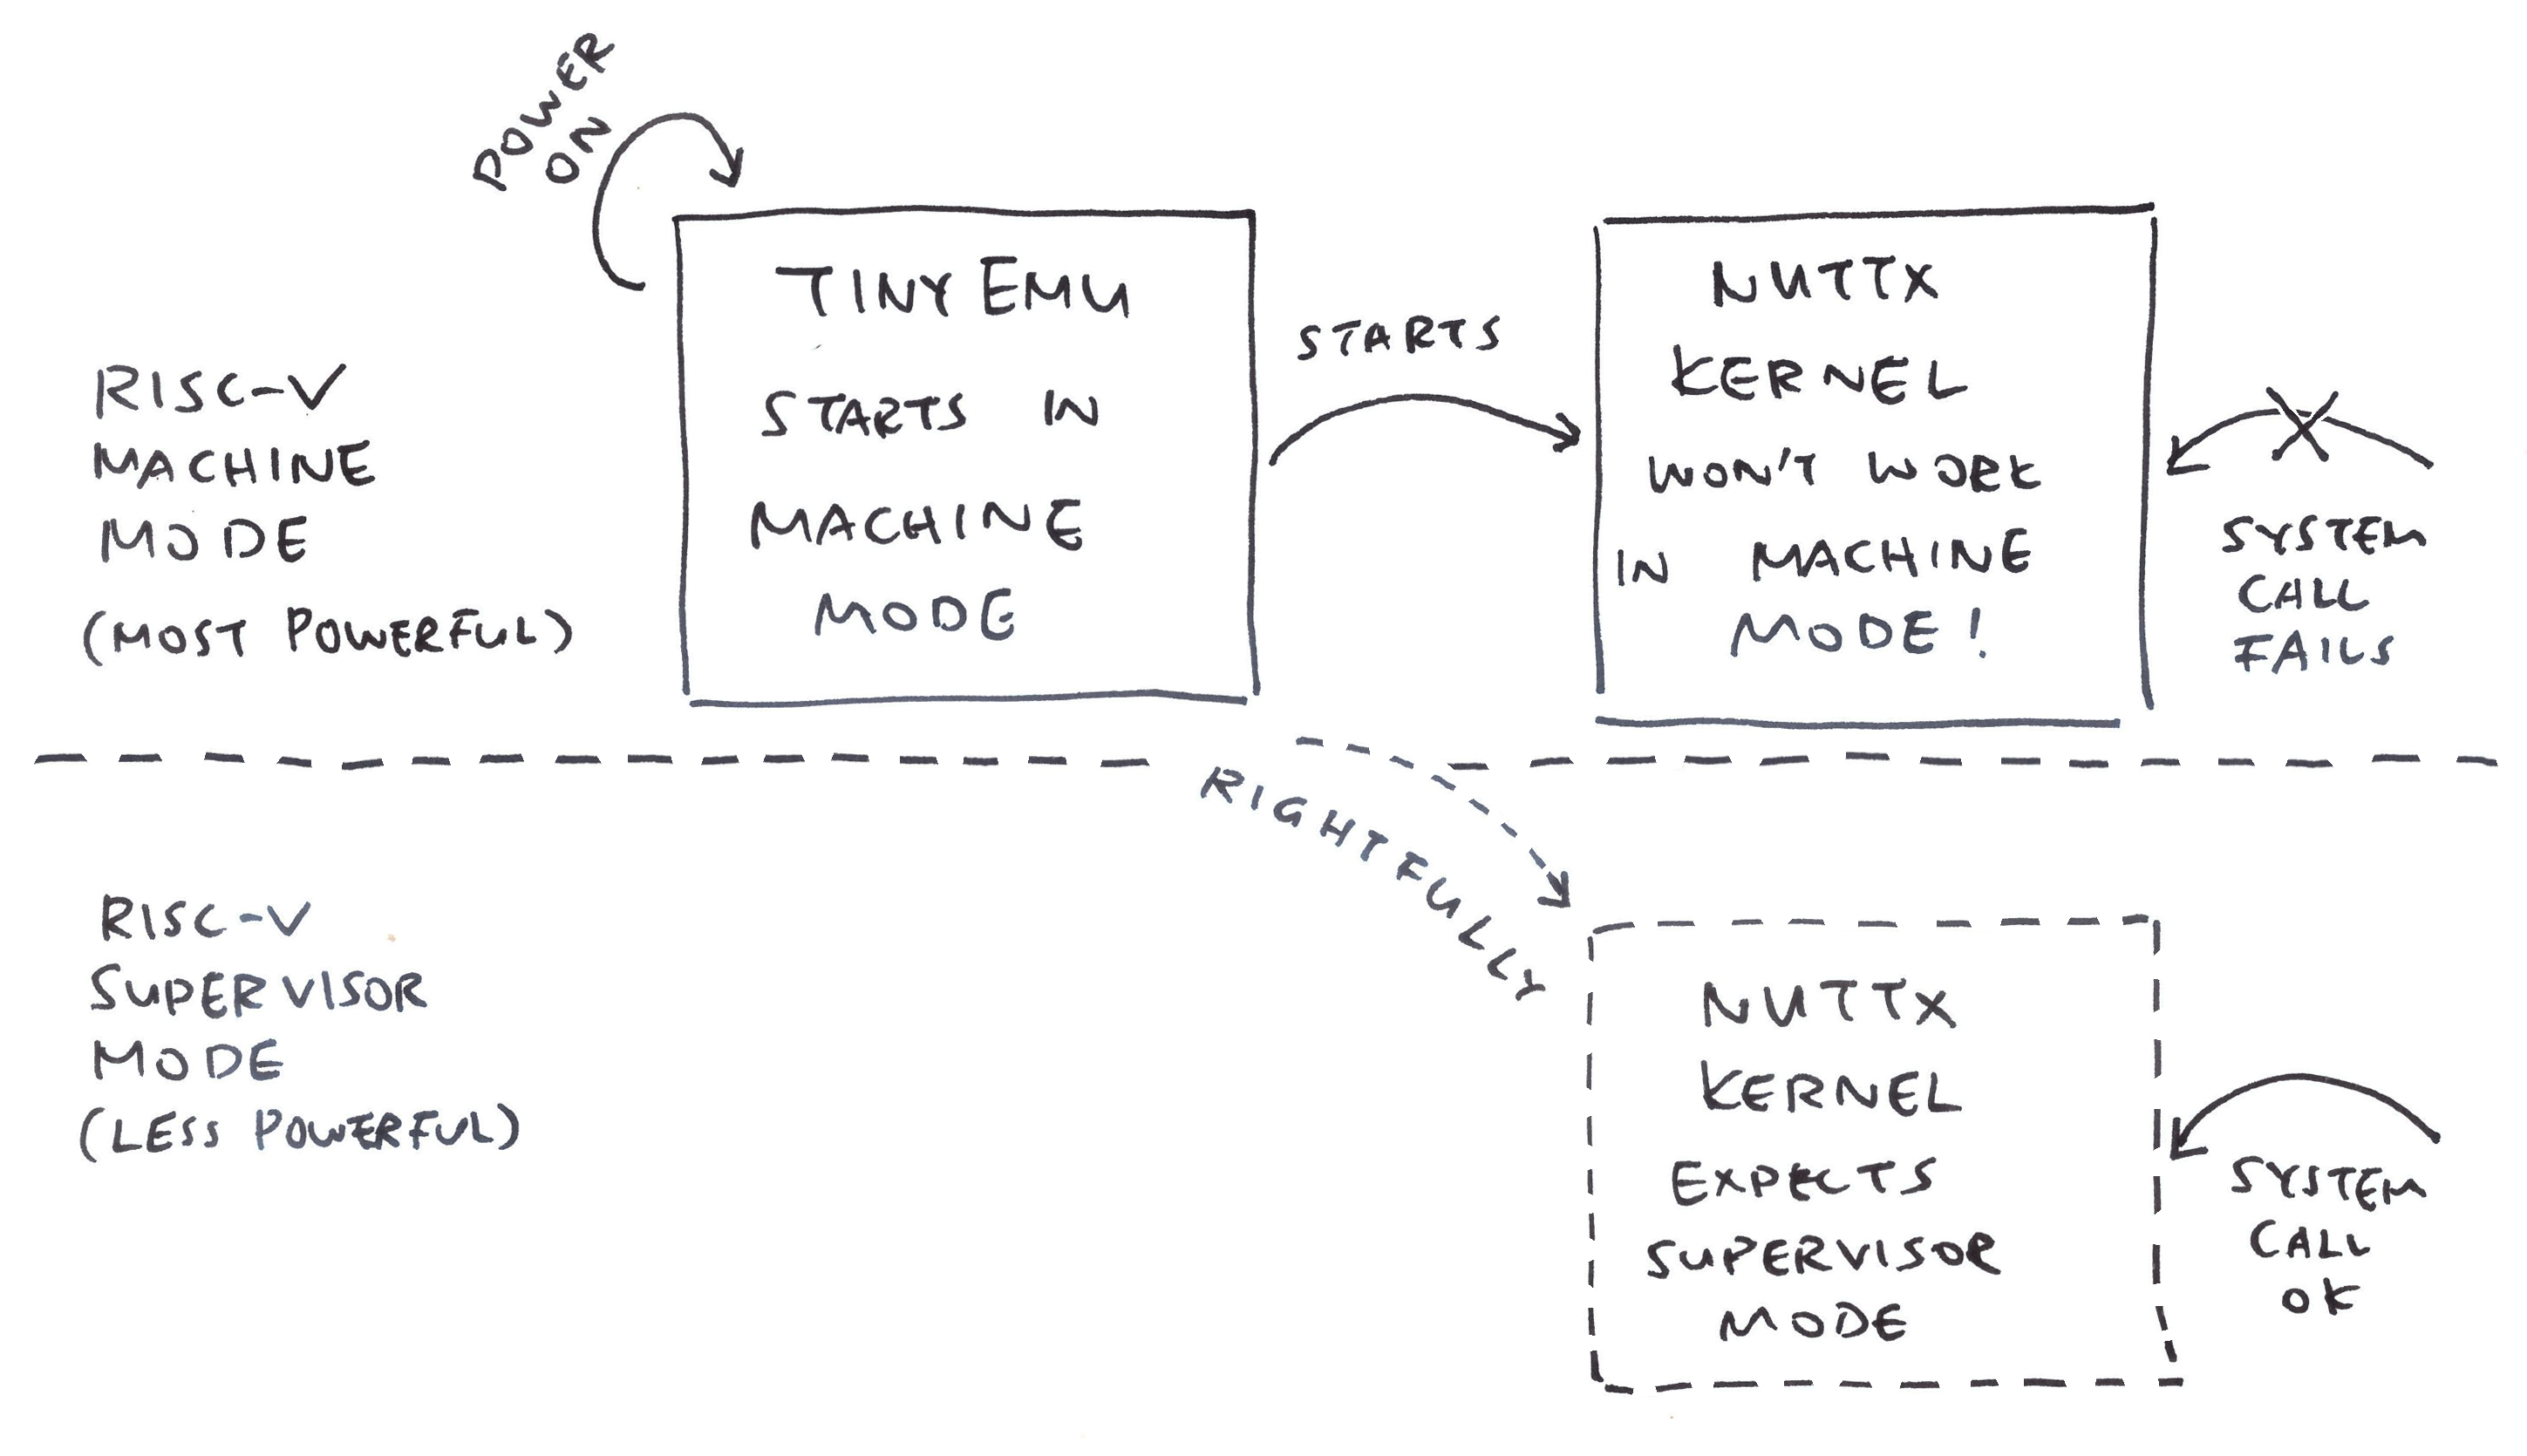 POWER
ON
RISC-V
MACHINE
MODE
(MOST POWERFUL)
TINYEMU
STARTS IN
MACHINE
MODE
STARTS
NUTTX
KERNEL
WON'T WORK
IN MACHINE
MODE!
SYSTEM
CALL
FAILS
RIGHTFULLY
RISC-V
SUPERVISOR
MODE
(LESS POWERFUL)
NUTTX
KERNEL
EXPECTS
SUPERVISOR
MODE
SYSTEM
CALL
OK